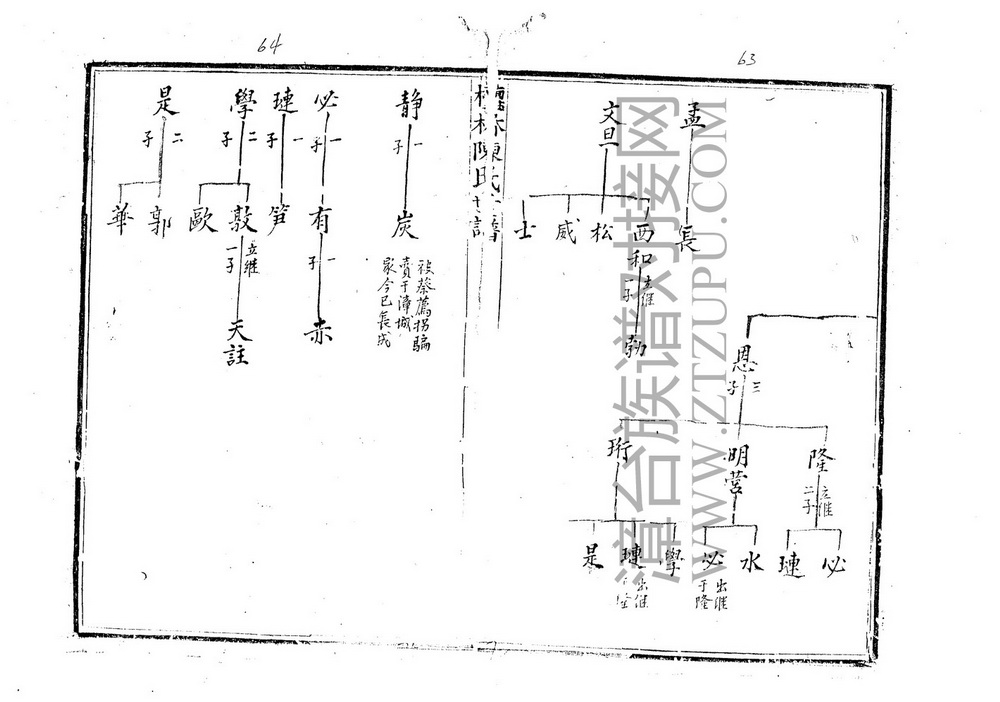 64
63
孟
長
文旦
西和
出繼
一子
勃
松
威
士
恩
三子
隆
立繼
二子
必
璉
明营
水
必
出繼
于隆
珩
學
璉
出繼
是
陳氏
静
一子
炭
被蔡薦拐騙
賣于漳城
家今已長成
必
一子
有
一子
赤
璉
一子
笋
學
二子
敦
立繼
一子
天註
歐
是
二子
郭
華
漳台族谱对接网
WWW.ZTZUPU.COM